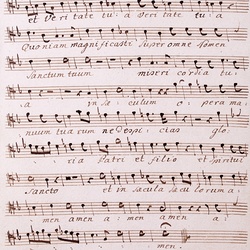 et Veritate tu: a Veritate tu: a
Quoniam magnificasti super omne Nomen
Sanctum tuum misericordia tu:
a in sæ culum o pera ma
nuum tuarum ne despi: cias glo:
ria Patri et filio et Spiritui
Sancto et in sæcula sæculorum a:
men amen a: men amen a:
men.